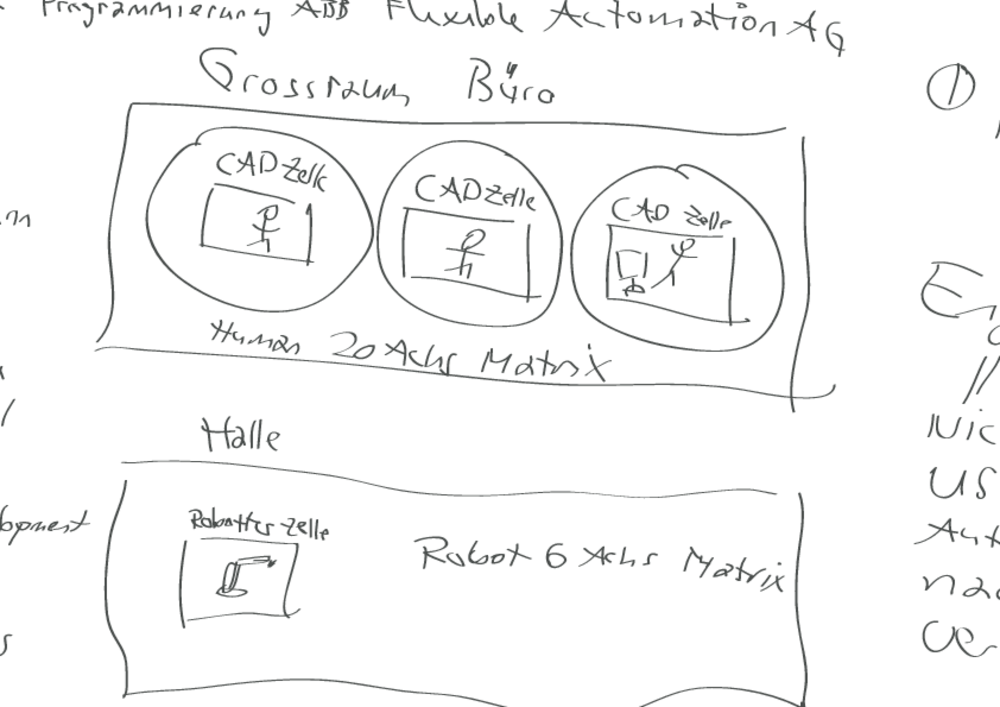 Programmierung ABB Flexible Automation AG
Grossraum Büro
CAD Zelle
CAD Zelle
CAD Zelle
Human 20 Achs Matrix
Halle
Robotter Zelle
Robot 6 Achs Matrix
①